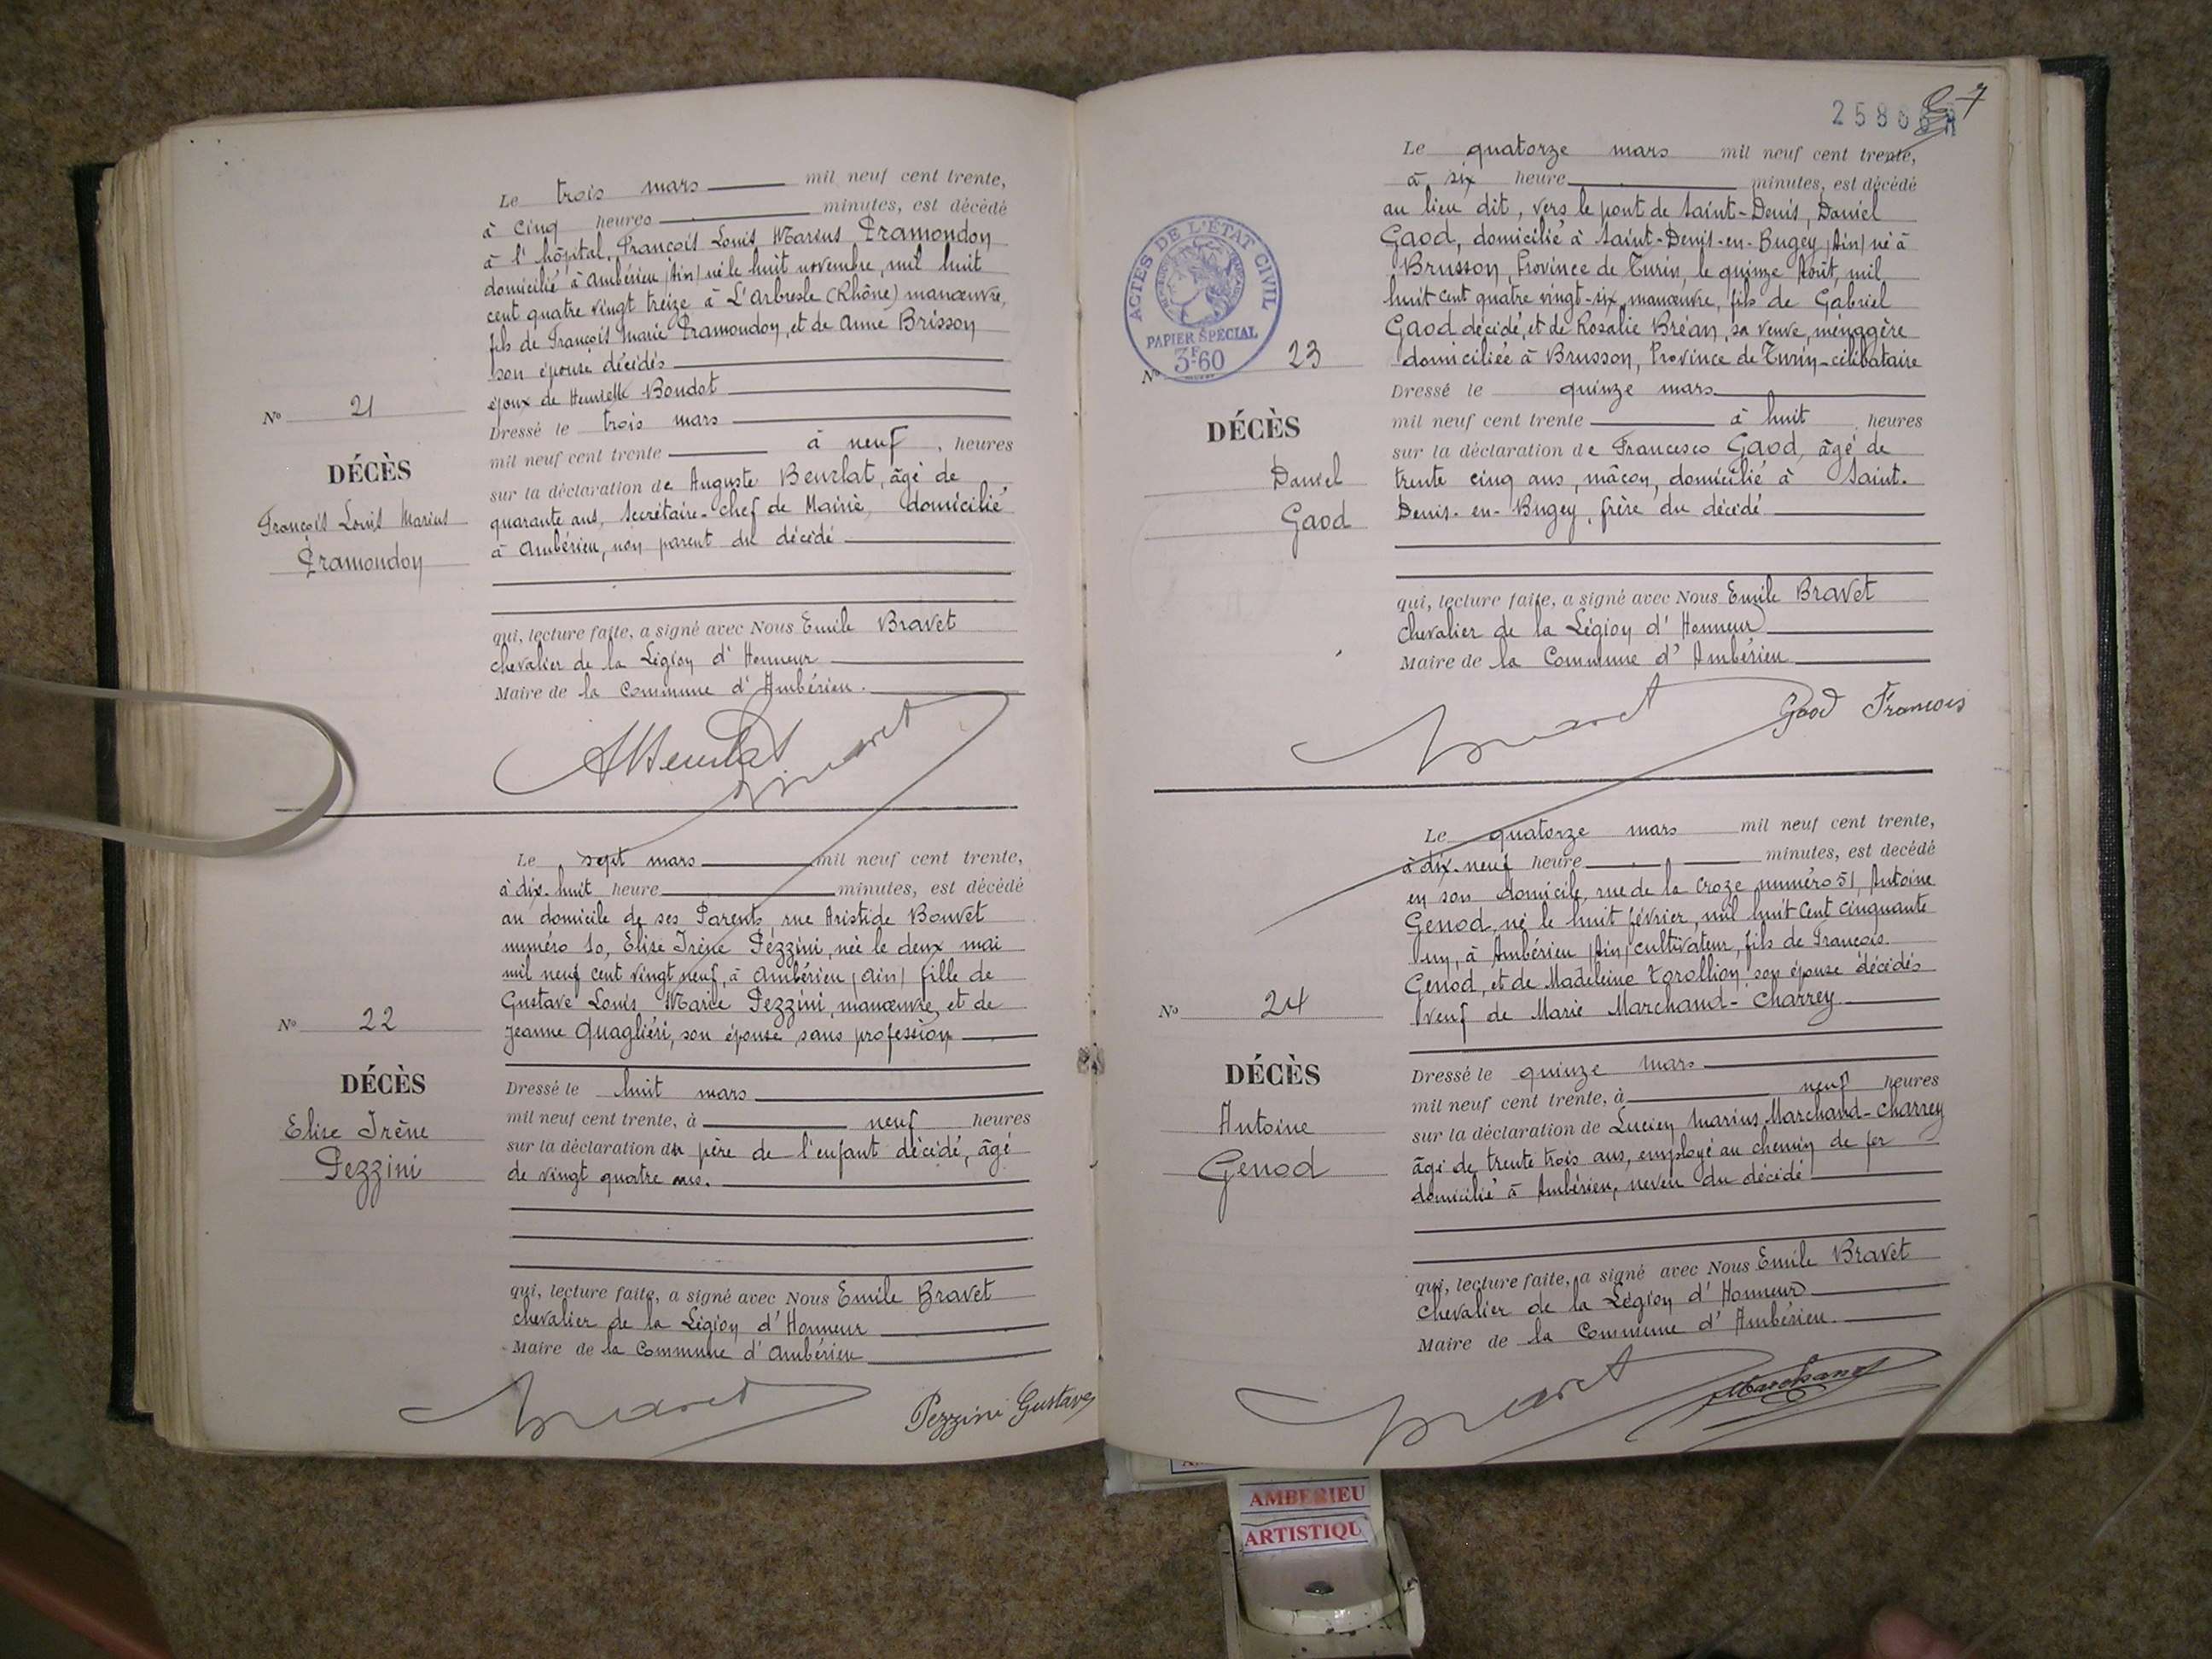 Le trois mars mil neuf cent trente,
à cinq heures minutes, est décédé
à l'hôpital, François Louis Marius Pramondon
domicilié à Ambérieu (Ain) né le huit novembre, mil huit
cent quatre vingt treize à L'Arbresle (Rhône) manœuvre,
fils de François Marie Pramondon, et de Anne Brisson
son épouse décédés
époux de Henriette Boudot
Nº 21
DÉCÈS
François Louis Marius
Pramondon
Dressé le trois mars
mil neuf cent trente à neuf heures
sur la déclaration de Auguste Beurlat, âgé de
quarante ans, Secrétaire-chef de Mairie, domicilié
à Ambérieu, non parent du décédé
qui, lecture faite, a signé avec Nous Emile Bravet
chevalier de la Légion d'Honneur
Maire de la Commune d'Ambérieu.
ABeurlat
Bravet
Le sept mars mil neuf cent trente,
à dix-huit heure minutes, est décédé
au domicile de ses Parents, rue Aristide Bouvet
numéro 10, Elise Irène Pezzini, née le deux mai
mil neuf cent vingt neuf, à Ambérieu (Ain) fille de
Gustave Louis Marie Pezzini, manœuvre, et de
Jeanne Quagliéri, son épouse sans profession
Nº 22
DÉCÈS
Elise Irène
Pezzini
Dressé le huit mars
mil neuf cent trente, à neuf heures
sur la déclaration du père de l'enfant décédé, âgé
de vingt quatre ans.
qui, lecture faite, a signé avec Nous Emile Bravet
chevalier de la Légion d'Honneur
Maire de la Commune d'Ambérieu
Bravet
Pezzini Gustave
7
Le quatorze mars mil neuf cent trente,
à six heure minutes, est décédé
au lieu dit, vers le pont de Saint-Denis, Daniel
Gaod, domicilié à Saint-Denis-en-Bugey (Ain) né à
Brusson, Province de Turin, le quinze Août, mil
huit cent quatre vingt-six, manœuvre, fils de Gabriel
Gaod décédé, et de Rosalie Bréan, sa veuve, ménagère
domiciliée à Brusson, Province de Turin-célibataire
ACTES DE L'ÉTAT CIVIL
PAPIER SPÉCIAL
3F60
Nº 23
DÉCÈS
Daniel
Gaod
Dressé le quinze mars
mil neuf cent trente à huit heures
sur la déclaration de Francesco Gaod, âgé de
trente cinq ans, mâcon, domicilié à Saint-
Denis-en-Bugey, frère du décédé
qui, lecture faite, a signé avec Nous Emile Bravet
Chevalier de la Légion d'Honneur
Maire de la Commune d'Ambérieu
Bravet
Gaod François
Le quatorze mars mil neuf cent trente,
à dix-neuf heure minutes, est décédé
en son domicile, rue de la Croze numéro 51, Antoine
Genod, né le huit février, mil huit cent cinquante
un, à Ambérieu (Ain) cultivateur, fils de François
Genod, et de Madeleine son épouse décédés
veuf de Marie Marchand-Charrey
Nº 24
DÉCÈS
Antoine
Genod
Dressé le quinze mars
mil neuf cent trente, à neuf heures
sur la déclaration de Lucien Marius Marchand-Charrey
âgé de trente trois ans, employé au chemin de fer
domicilié à Ambérieu, neveu du décédé
qui, lecture faite, a signé avec Nous Emile Bravet
Chevalier de la Légion d'Honneur
Maire de la Commune d'Ambérieu.
Bravet
Marchand
AMBERIEU
ARTISTIQU